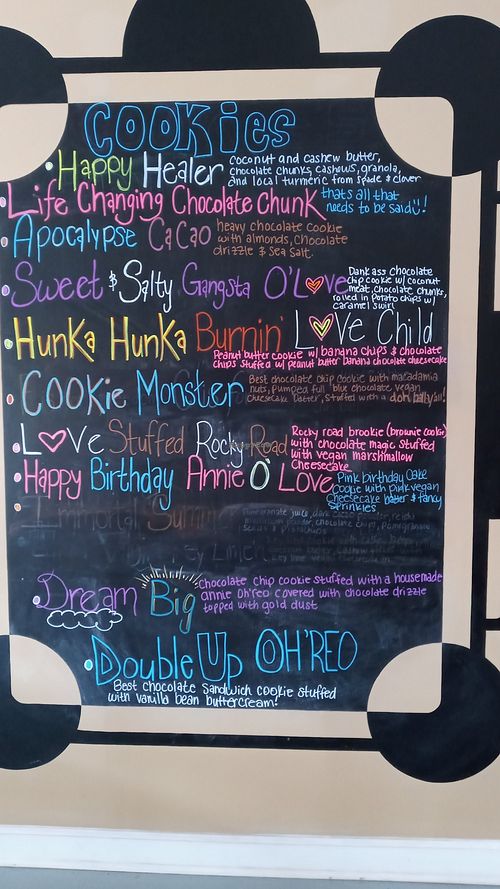 COOKies
Happy Healer
coconut and cashew butter,
chocolate chunks, cashews, granola,
and local turmeric from spade & clover
Life Changing Chocolate Chunk
thats all that
needs to be said!
Apocalypse CaCao
heavy chocolate cookie
with almonds, chocolate
drizzle & sea salt.
Sweet & Salty Gangsta O'Love
Dank ass chocolate
chip cookie w/ coconut
meat, chocolate chunks,
rolled in potato chips w/
caramel swirl
HunKa HunKa Burnin' LOVe Child
Peanut butter cookie w/ banana chips & chocolate
chips stuffed w/ peanut butter banana chocolate cheesecake
COOKie Monster
Best chocolate chip cookie with macadamia
nuts, pumped full blue chocolate vegan
cheesecake batter, stuffed with a
LOVe Stuffed Rocky Road
Rocky road brookie (brownie cookie)
with chocolate magic stuffed
with vegan marshmallow
cheesecake
Happy Birthday Annie O' Love
Pink birthday cake
cookie with pink vegan
cheesecake batter & fancy
sprinkles
Immortal
Dream Big
chocolate chip cookie stuffed with a housemade
annie oh'reo covered with chocolate drizzle
topped with gold dust
Double Up OH'REO
Best chocolate sandwich cookie stuffed
with vanilla bean buttercream!